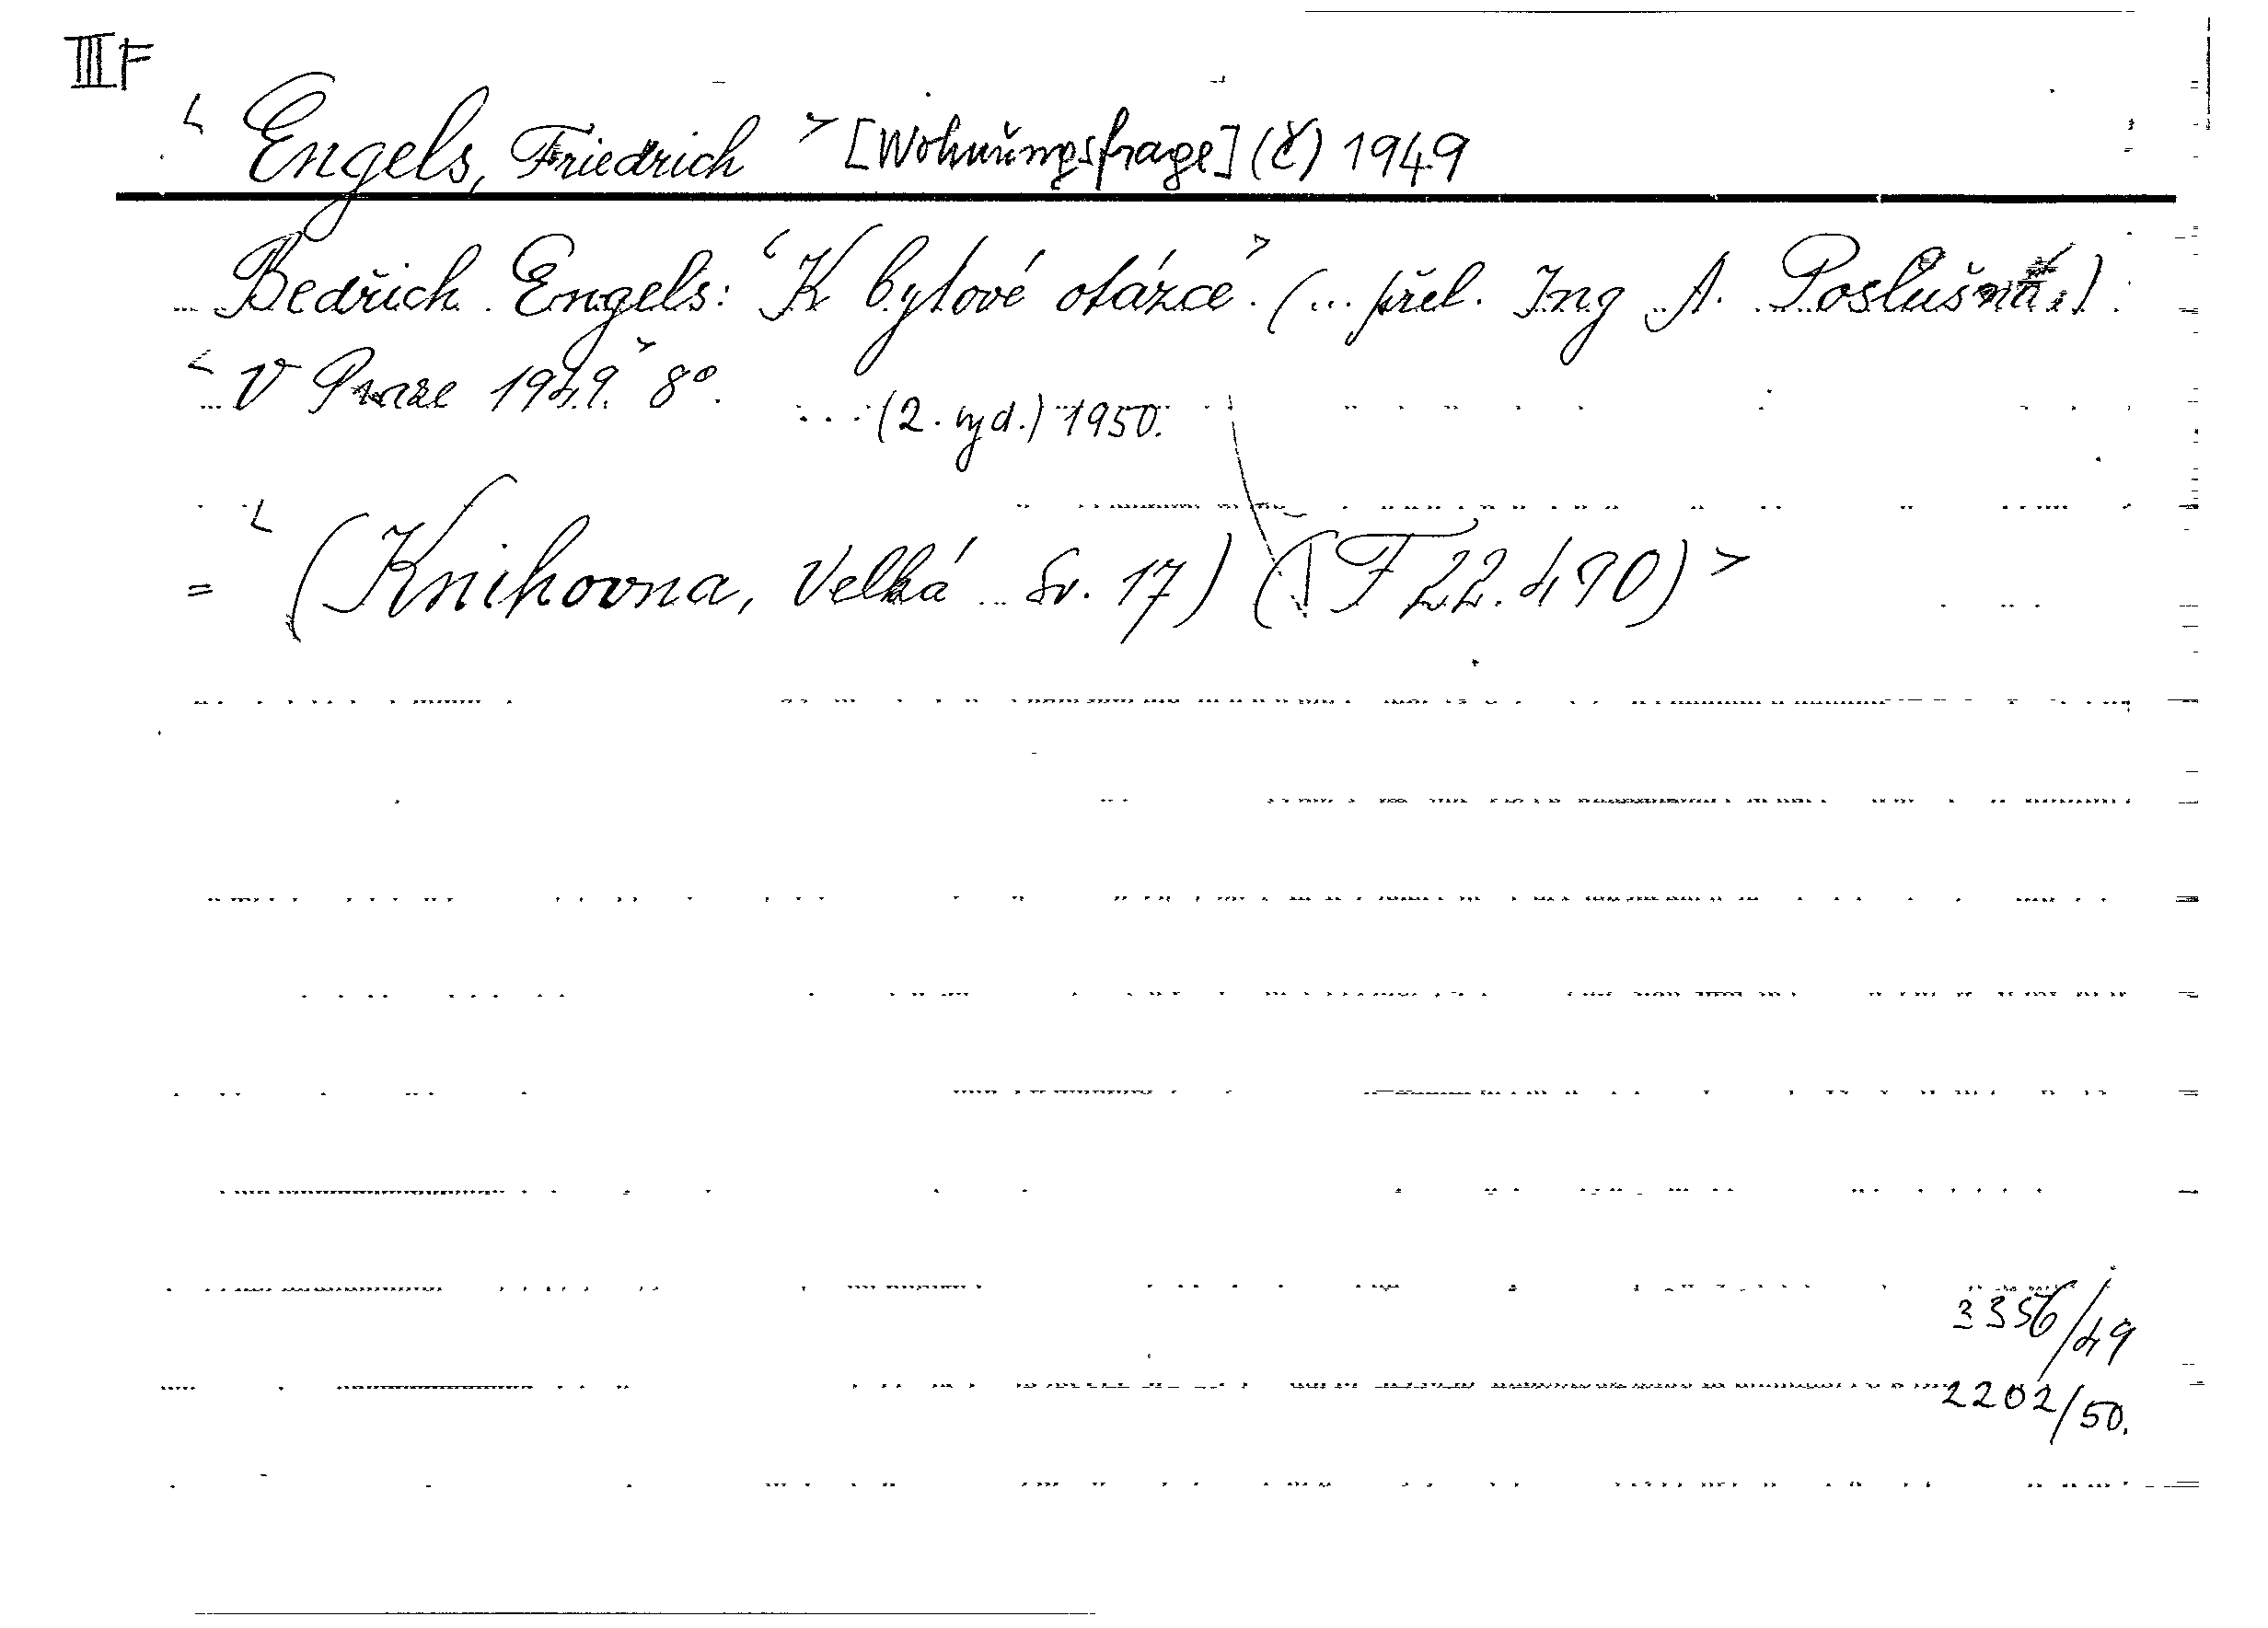 III F
< Engels, Friedrich > [Wohnungsfrage] (č) 1949
Bedřich Engels: <K bytové otázce>. (... přel. Ing A. Poslušná.)
< V Praze 1949.> 8°. ... (2. vyd.) 1950.
= < (Knihovna, Velká Sv. 17) (F 22.490) >
3356/49
2202/50.